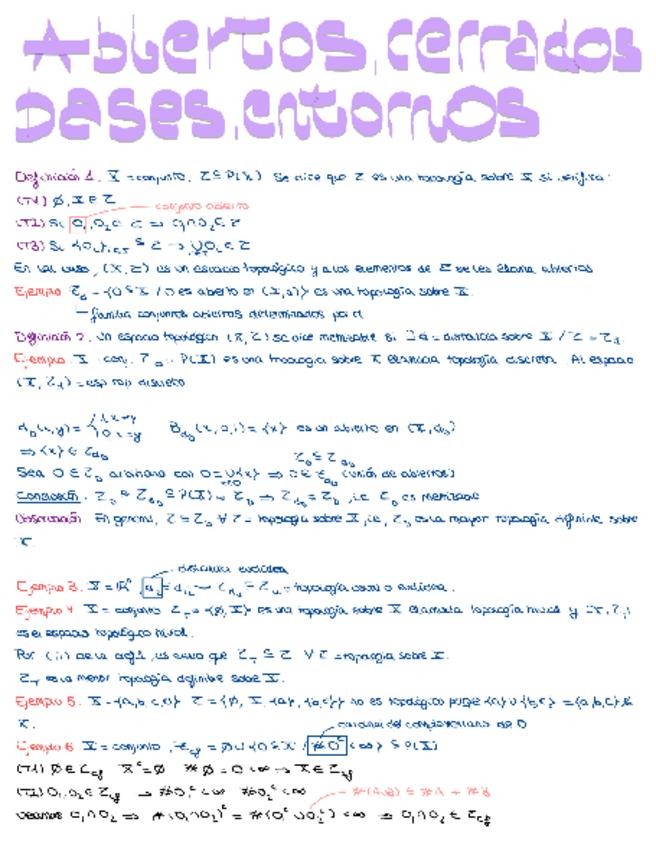 Abiertos, cerrados
bases, entornos
Definición 1. X = conjunto, τ ⊆ P(X) Se dice que τ es una topología sobre X si verifica:
(T1) ∅, X ∈ τ
conjunto abierto
(T2) Si O₁, O₂ ∈ τ ⇒ O₁∩O₂ ∈ τ
(T3) Si
En tal caso, (X, τ) es un espacio topológico y a los elementos de τ se les llama abiertos
Ejemplo τd = {O ⊆ X / O es abierto en (X, d)} es una topología sobre X.
familia conjuntos abiertos determinados por d
Definición 2. Un espacio topológico (X, τ) se dice metrizable si ∃ d = distancia sobre X / τ = τd.
Ejemplo X = conj. P(X) es una topología sobre X llamada topología discreta. Al espacio
= esp top discreto
es un abierto en
⇒ {x} ∈
Sea arbitrario con (unión de abiertos)
Conclusión. es metrizable
Observación En general, topología sobre X, i.e, es la mayor topología definible sobre
X.
distancia euclídea
Ejemplo 3. X = ℝⁿ topología usual o euclídea.
Ejemplo 4 X = conjunto = {∅, X} es una topología sobre X llamada topología trivial y
es el espacio topológico trivial.
Por (i) de la def 1, es claro que topología sobre X.
es la menor topología definible sobre X.
Ejemplo 5. X = {a,b,c,d} τ = {∅, X, {a}, {b,c}} no es topología pues {a}∪{b,c} = {a,b,c} ∉
τ.
cardinal del complementario de O
Ejemplo 6 X = conjunto, τcf = ∅∪{O ⊆ X / #Oᶜ < ∞} ⊆ P(X)
(T1) ∅ ∈ τcf Xᶜ = ∅ #∅ = 0 < ∞ ⇒ X ∈ τcf
(T2) O₁, O₂ ∈ τcf ⇒ #O₁ᶜ < ∞ #O₂ᶜ < ∞
#(A∪B) ≤ #A + #B
veamos O₁∩O₂ ⇒ #(O₁∩O₂)ᶜ = #(O₁ᶜ∪O₂ᶜ) < ∞ ⇒ O₁∩O₂ ∈ τcf